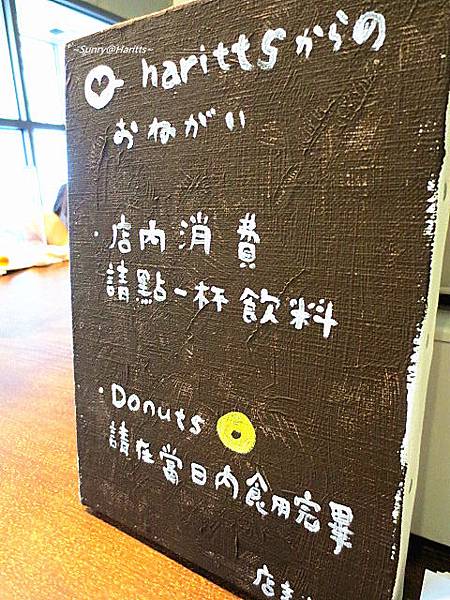 ~Sunry@Haritts~
harittsからの
おねがい
・店內消費
請點一杯飲料
・Donuts
請在當日內食用完畢
店主